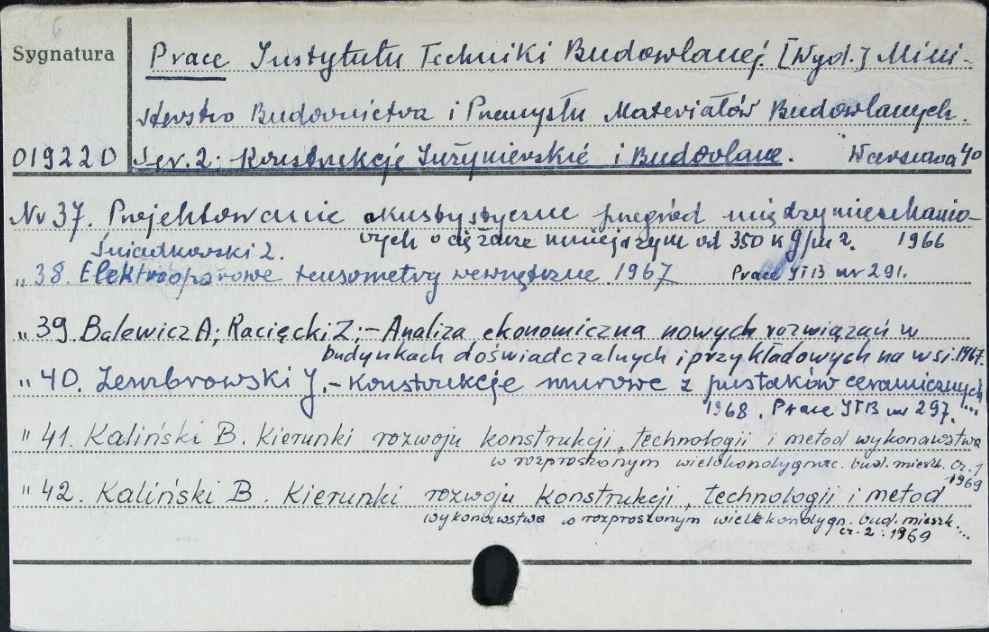 Sygnatura
Prace Instytutu Techniki Budowlanej. [Wyd.] Mini-
sterstwo Budownictwa i Przemysłu Materiałów Budowlanych.
019220 Ser. 2: Konstrukcje Inżynierskie i Budowlane. Warszawa 40
Nr 37. Projektowanie akustystyczne przegród międzymieszkanio-
wych o ciężarze mniejszym od 350 kg/m 2. 1966
Śniadkowski Z.
„ 38. Elektrooporowe tensometry wewnętrzne. 1967 Prace ITB nr 291.
„ 39. Balewicz A; Racięcki Z; – Analiza ekonomiczna nowych rozwiązań w
budynkach doświadczalnych i przykładowych na wsi. 1967.
„ 40. Zembrowski J. – Konstrukcje murowe z pustaków ceramicznych
1968. Prace ITB nr 297. ...
" 41. Kaliński B. Kierunki rozwoju konstrukcji, technologii i metod wykonawstwa
w rozproszonym wielokondygnac. bud. mieszk. cz. 1
1969
" 42. Kaliński B. Kierunki rozwoju konstrukcji, technologii i metod
wykonawstwa w rozproszonym wielokondygn. bud. mieszk. ...
cz. 2. 1969